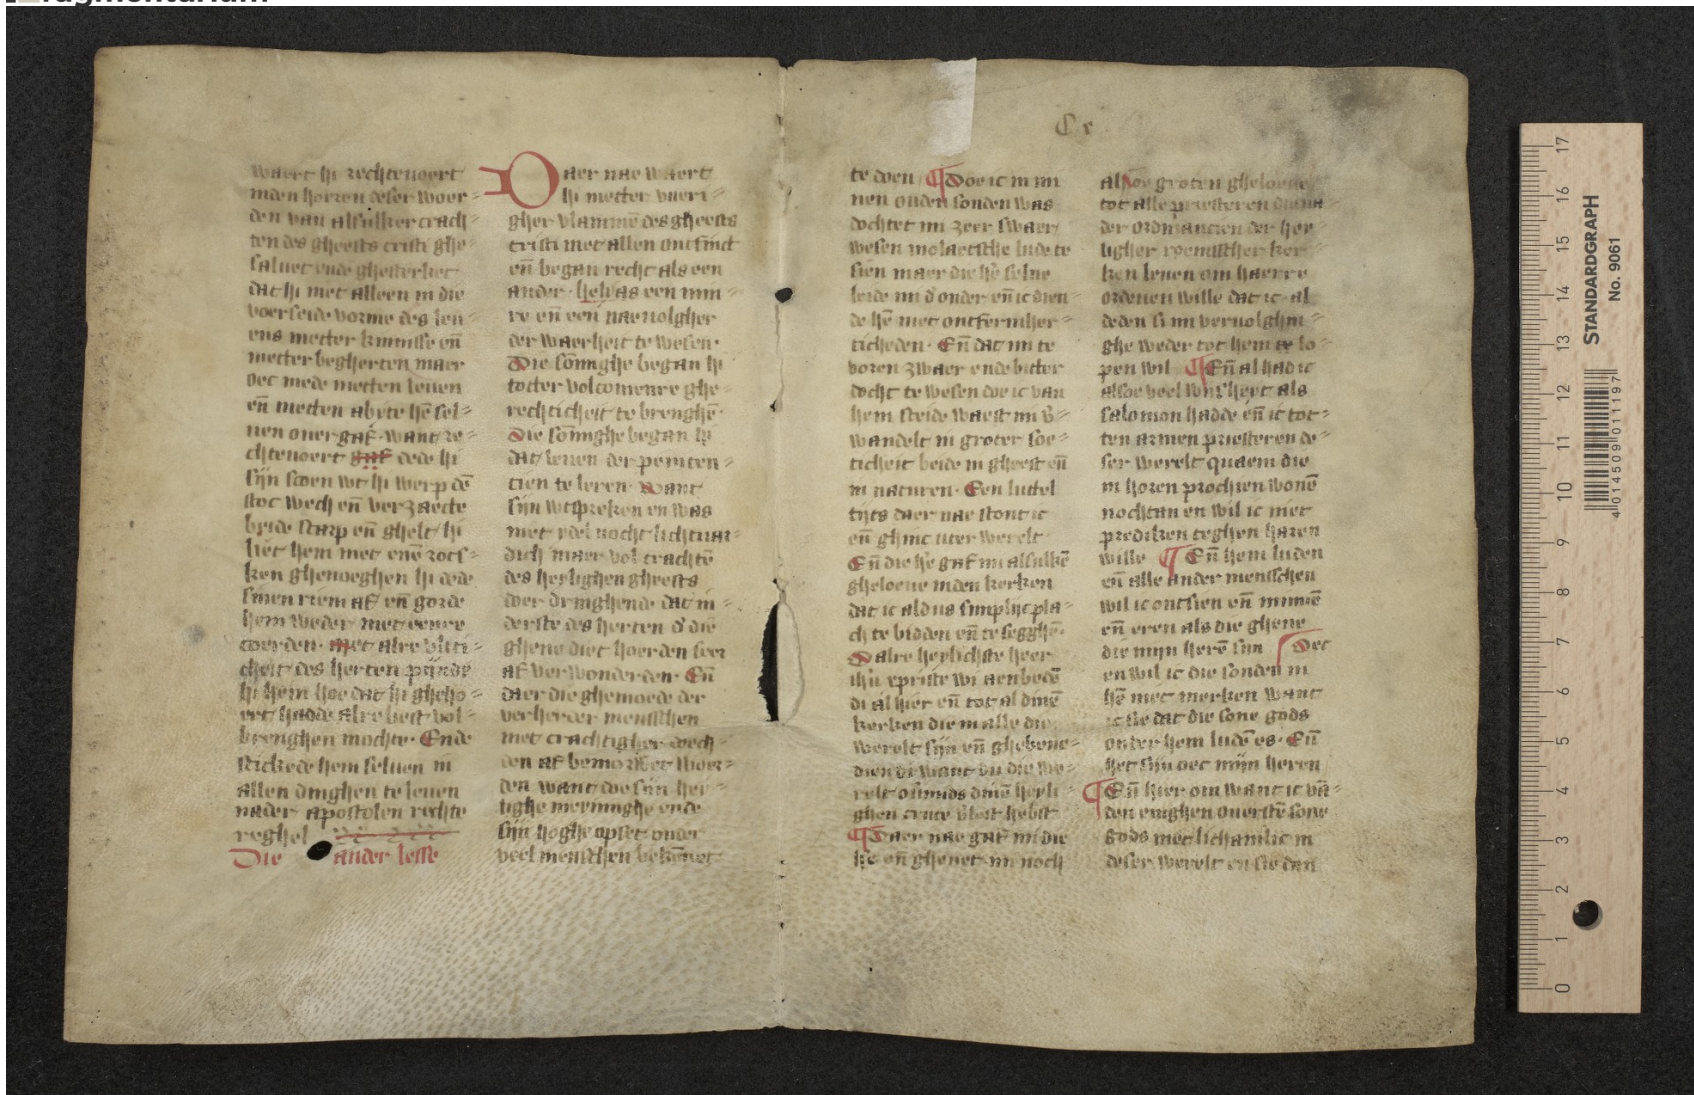 fragmentarium
C x
waert hi rechteuoert
inden horen deser woer⸗
den van alsulker crach⸗
ten des gheests cristi ghe⸗
saluet ende ghesterket
dat hi met alleen in die
voerseide vorme des leu⸗
ens metter kinnisse en̄
metter begherten maer
oec mede metten leuen
en̄ metten abyte hē sel⸗
uen ouergaf. want re⸗
chteuoert gaf dede hi
sijn scoen wt hi werp dē
stoc wech en̄ verzaecte
beide scarp en̄ ghelt hi
liet hem met enē rocs⸗
ken ghenoeghen hi dede
sinen riem af en̄ gorde
hem weder met eenre
coerden. met alre vliti⸗
cheit des herten pijnde
hi hem hoe dat hi gheho⸗
ert hadde alre best vol⸗
brenghen mochte. Ende
stickede hem seluen in
allen dinghen te leuen
nader apostolen rechte
reghel
Die ander lesse
Daer nae waert
hi metter vueri⸗
gher vlammē des gheests
cristi met allen ontfinct
en̄ began recht als een
ander helyas een min⸗
re en̄ een nauolgher
der waerheit te wesen.
Die sōmighe began hi
totter volcomenre ghe⸗
rechticheit te brenghē.
Die sōmighe began hi
dat leuen der peniten⸗
cien te leren. want
sijn wtspreken en was
met ydel nocht lichtuar⸗
dich maer vol crachtē
des heylighen gheests
doer dringhende dat in⸗
derste des herten
ghene diet hoerden seer
af verwonderden. En̄
daer die ghemoede der
verherder menschen
met crachtigher doech⸗
den af bemorwet wor⸗
den want doe sijn hei⸗
lighe meyninghe ende
sijn hoghe opset onder
veel menschen bekēnet
te doen ¶ Doe ic in mi
nen ouden sonden was
dochtet mi zeer swaer
wesen molaetsche lude te
sien maer die hē selue
leide mi d'onder en̄ ic dien⸗
de hē met ontfermher⸗
ticheden. En̄ dat mi te
voren zwaer ende bitter
docht te wesen doe ic van
hem sceide waest mi v̄⸗
wandelt in groter soe⸗
ticheit beide in gheest en̄
in naturen. Een luttel
tijts daer nae stont ic
en̄ ghinc uter werelt
En̄ die hē gaf mi alsulkē
gheloeue inden kerken
dat ic aldus simplijc pla⸗
ch te bidden en̄ te segghē.
O alre heylichste heer
ihū xpriste wi aenbedē
di al hier en̄ tot al dinē
kerken die in alle die
werelt sijn en̄ ghebene⸗
dien di want du die we⸗
relt ouermids dinē heyli⸗
ghen cruce v̄lost hebste
¶ Daer nae gaf mi die
hē en̄ gheuet mi noch
alsoe groten gheloeue
tot alle priesteren
der ordinancien der hey
ligher roemscher ker⸗
ken leuen om haerre
ordenen wille dat ic al
deden si mi veruolghin⸗
ghe weder tot hem te lo⸗
pen wil ¶ En̄ al had ic
alsoe veel wijsheyt als
salomon hadde en̄ ic tot⸗
ten armen priesteren de⸗
ser werelt quaem die
in horen prochien wonē
nochtan en wil ic niet
prediken teghen haren
wille ¶ En̄ hem luden
en̄ alle ander menschen
wil ic ontsien en̄ minnē
en̄ eren als die ghene
die mijn herē sijn Oec
en wil ic die sonden in
hē met merken want
ic sie dat die sone gods
onder hem ludē es. En̄
het sijn oec mijn heren
¶ En̄ hier om want ic vā
den enighen ouerstē sone
gods met lichamlic in
deser werelt en sie dan
STANDARDGRAPH
No. 9061
4 014509 011197
17
16
15
14
13
12
11
10
9
8
7
6
5
4
3
2
1
0